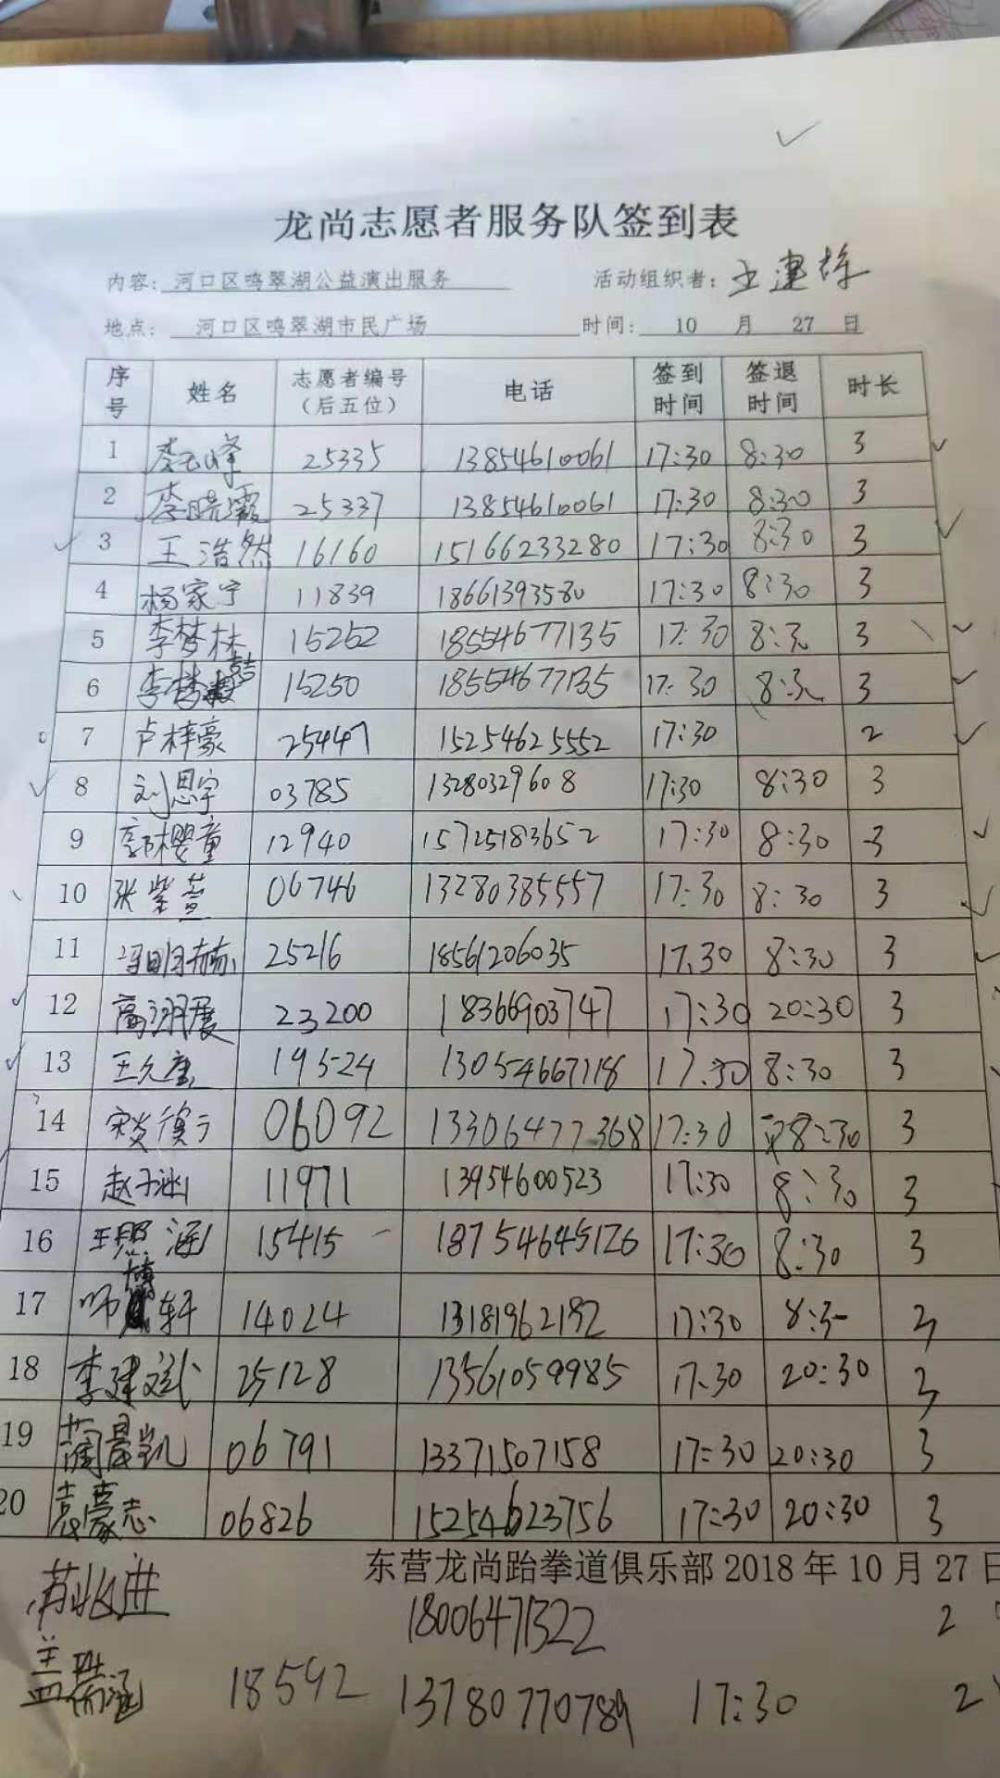 龙尚志愿者服务队签到表
内容：河口区鸣翠湖公益演出服务 活动组织者：王建栋
地点：河口区鸣翠湖市民广场 时间：10 月 27 日
序号 姓名 志愿者编号（后五位） 电话 签到时间 签退时间 时长
1 李云峰 25335 13854610061 17:30 8:30 3
2 李晓霞 25337 13854610061 17:30 8:30 3
3 王浩然 16160 15166233280 17:30 8:30 3
4 杨家宇 11839 18661393580 17:30 8:30 3
5 李梦林 15252 18554677135 17:30 8:30 3
6 李梦喆 15250 18554677135 17:30 8:30 3
7 卢梓豪 25447 15254625552 17:30 2
8 刘恩宇 03785 13280329608 17:30 8:30 3
9 郭樱童 12940 15725183652 17:30 8:30 3
10 张紫萱 06746 13280385557 17:30 8:30 3
11 冯明赫 25216 18561206035 17:30 8:30 3
12 高翊展 23200 18366903747 17:30 20:30 3
13 王允唐 19524 13054667718 17:30 8:30 3
14 06092 13306477368 17:30 8:30 3
15 赵子涵 11971 13954600523 17:30 8:30 3
16 王熙涵 15415 18754645126 17:30 8:30 3
17 师博轩 14024 13181962192 17:30 8:3 3
18 李建斌 25128 13561059985 17:30 20:30 3
19 蔺晨凯 06791 13371507158 17:30 20:30 3
20 袁豪志 06826 15254623756 17:30 20:30 3
东营龙尚跆拳道俱乐部 2018 年 10 月 27 日
18006471322 2
盖蒋涵 18592 13780770789 17:30 2